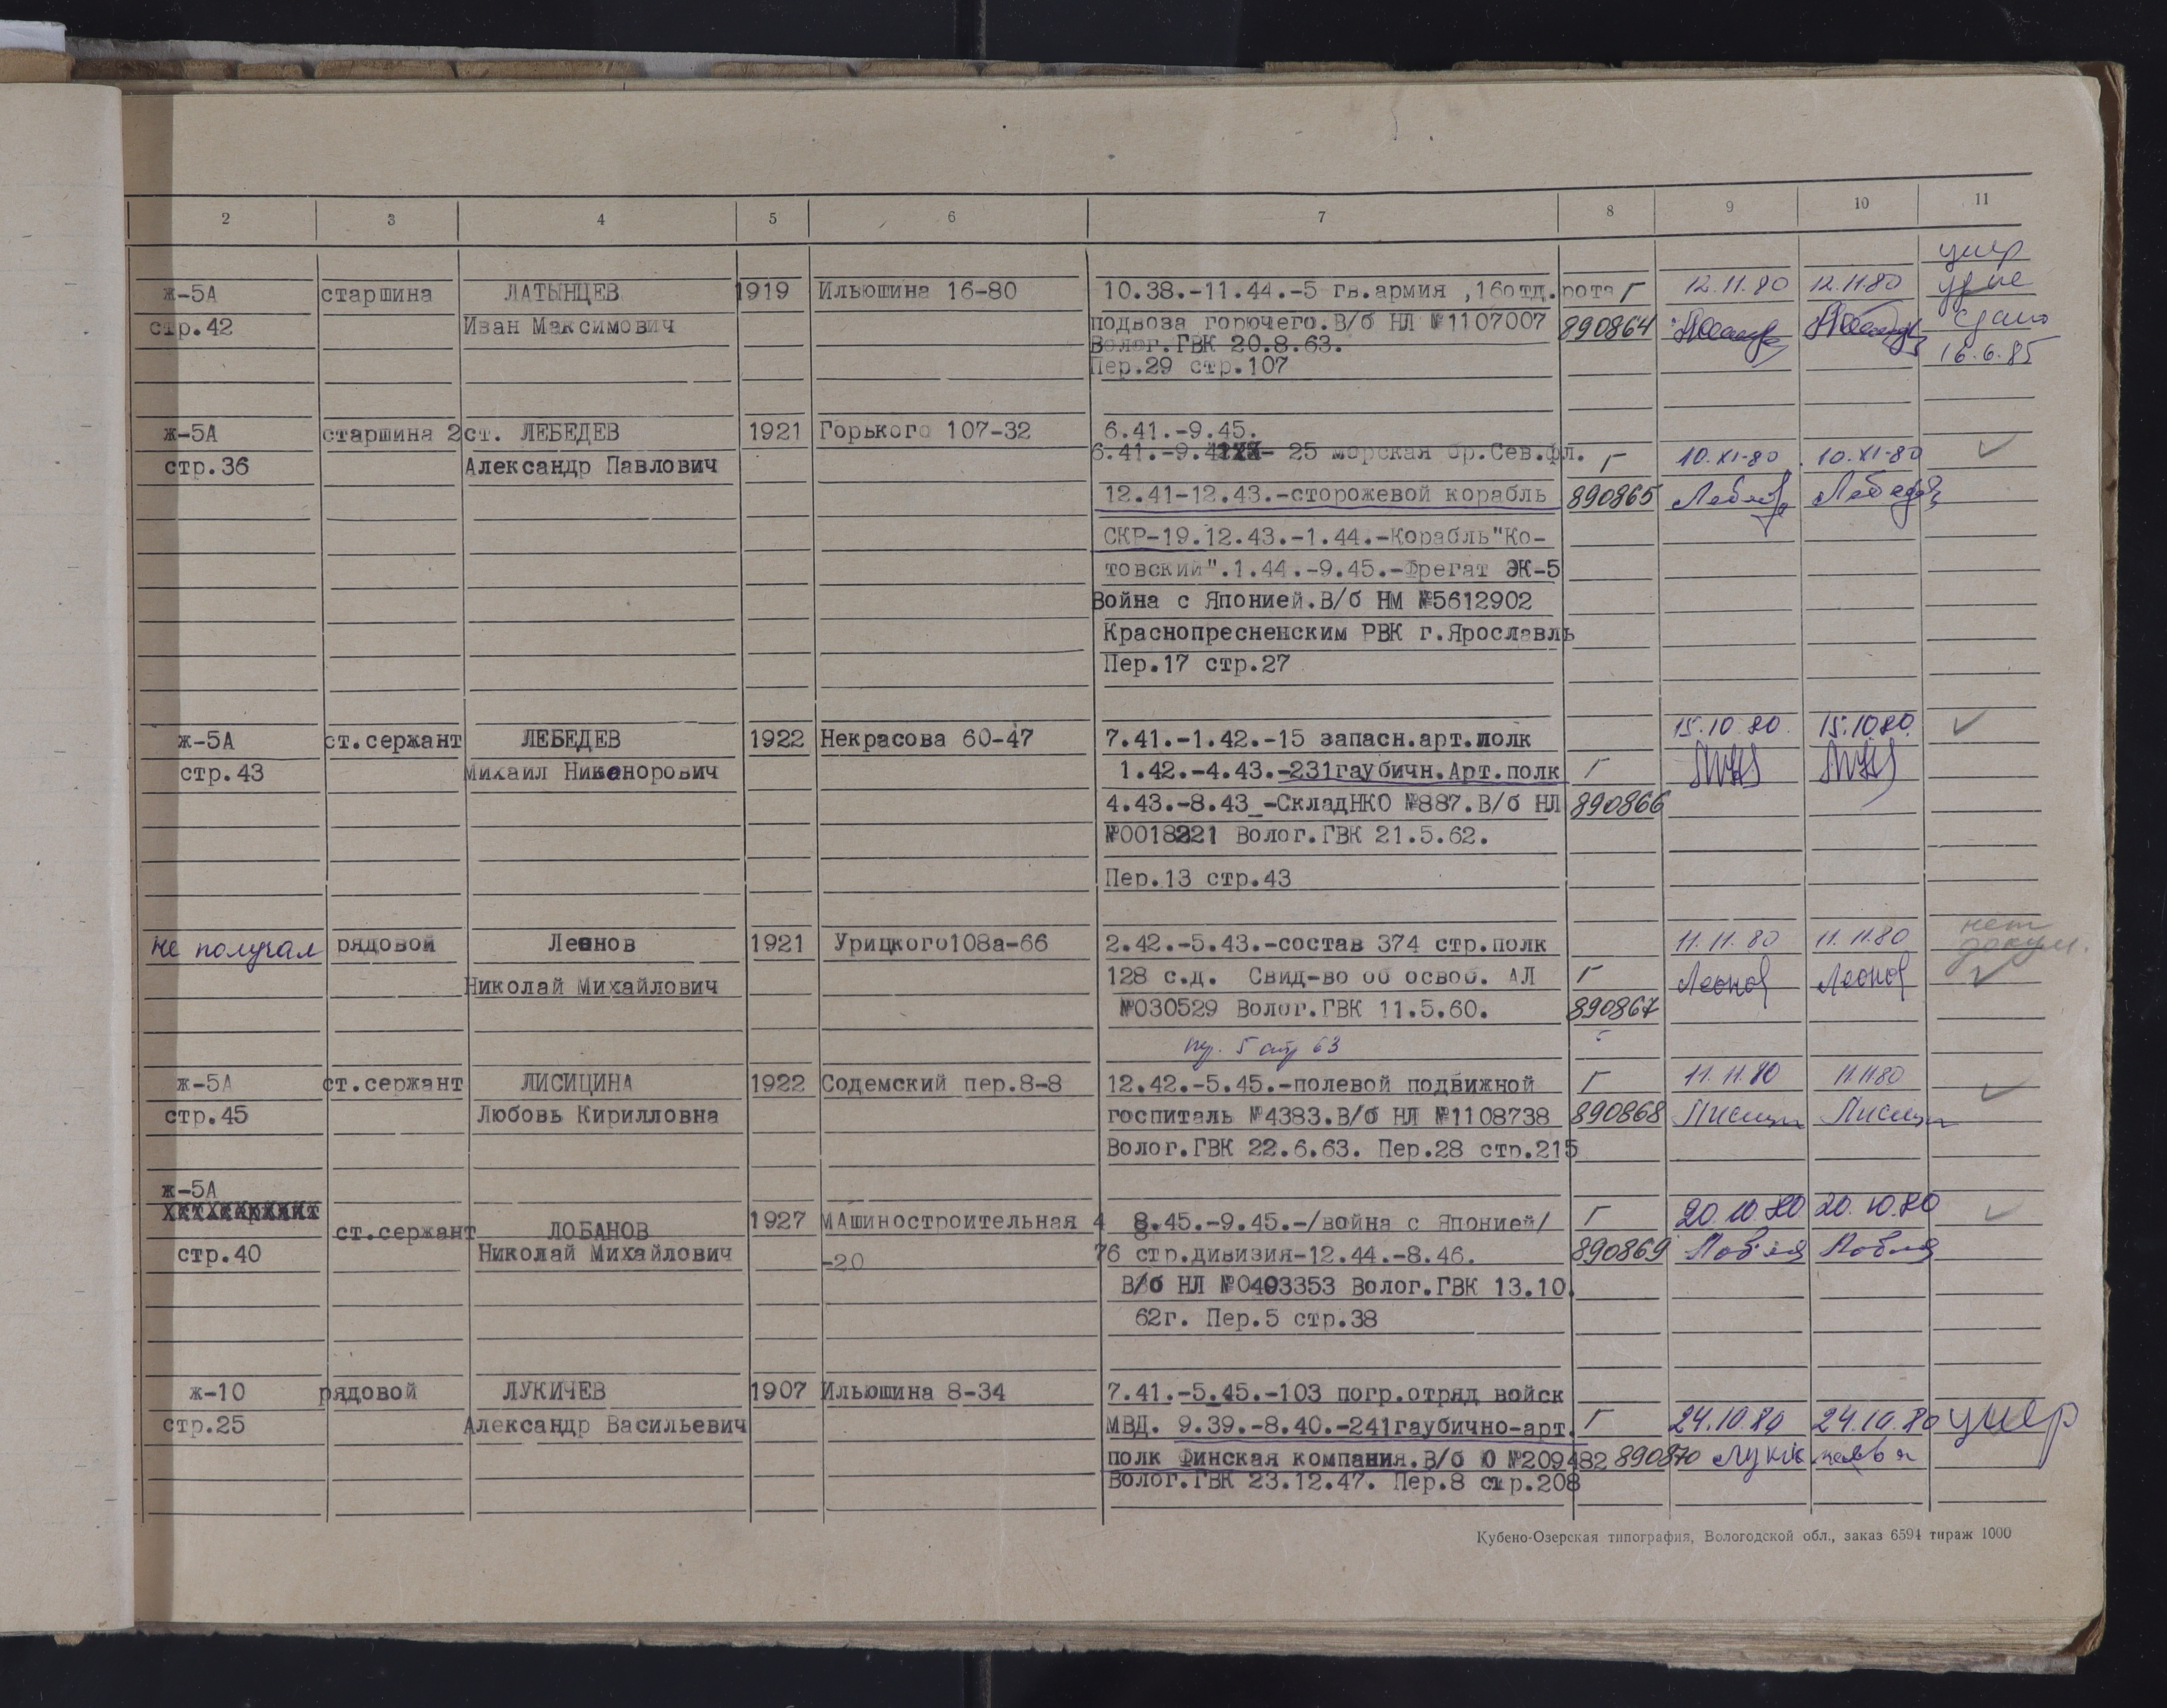 2 3 4 5 6 7 8 9 10 11
умер
ж-5А старшина ЛАТЫНЦЕВ 1919 Ильюшина 16-80 10.38.-11.44.-5 гв.армия ,16отд.рота Г 12.11.80 12.11.80
стр.42 Иван Максимович подвоза горючего.В/б НЛ №1107007 890864 сдано
Волог.ГВК 20.8.63. 16.6.85
Пер.29 стр.107
ж-5А старшина 2ст. ЛЕБЕДЕВ 1921 Горького 107-32 6.41.-9.45.
стр.36 Александр Павлович 6.41.-9.41хх- 25 морская бр.Сев.фл. Г 10.XI-80 10.XI-80 ✓
12.41-12.43.-сторожевой корабль 890865 Лебедев Лебедев
СКР-19.12.43.-1.44.-Корабль"Ко-
товский".1.44.-9.45.-Фрегат ЭК-5
Война с Японией.В/б НМ №5612902
Краснопресненским РВК г.Ярославль
Пер.17 стр.27
ж-5А ст.сержант ЛЕБЕДЕВ 1922 Некрасова 60-47 7.41.-1.42.-15 запасн.арт.полк 15.10.80. 15.10.80. ✓
стр.43 Михаил Никанорович 1.42.-4.43.-231гаубичн.Арт.полк Г
4.43.-8.43_-СкладНКО №887.В/б НЛ 890866
№0018221 Волог.ГВК 21.5.62.
Пер.13 стр.43
не получал рядовой Леонов 1921 Урицкого108а-66 2.42.-5.43.-состав 374 стр.полк 11.11.80 11.11.80 нет докум.
Николай Михайлович 128 с.д. Свид-во об освоб. АЛ Г Леонов Леонов ✓
№030529 Волог.ГВК 11.5.60. 890867
пер. 5 стр 63
ж-5А ст.сержант ЛИСИЦИНА 1922 Содемский пер.8-8 12.42.-5.45.-полевой подвижной Г 11.11.80 11.11.80 ✓
стр.45 Любовь Кирилловна госпиталь №4383.В/б НЛ №1108738 890868 Лисици Лисици
Волог.ГВК 22.6.63. Пер.28 стр.215
ж-5А
ст.сержант ЛОБАНОВ 1927 МАшиностроительная 4 8.45.-9.45.-/война с Японией/ Г 20.10.80 20.10.80 ✓
стр.40 Николай Михайлович -20 76 стр.дивизия-12.44.-8.46. 890869
В/б НЛ №0403353 Волог.ГВК 13.10.
62г. Пер.5 стр.38
ж-10 рядовой ЛУКИЧЕВ 1907 Ильюшина 8-34 7.41.-5.45.-103 погр.отряд войск
стр.25 Александр Васильевич МВД. 9.39.-8.40.-241гаубично-арт. Г 24.10.80 24.10.80 умер
полк Финская компания.В/б Ю №209482 890870
Волог.ГВК 23.12.47. Пер.8 стр.208
Кубено-Озерская типография, Вологодской обл., заказ 6594 тираж 1000